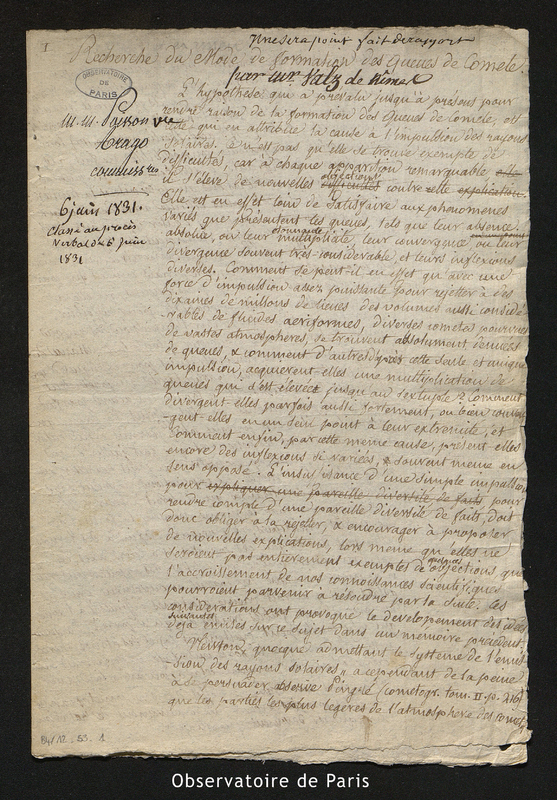 Il ne sera point fait de rapport
1
Recherche du Mode de formation des Queues de Comete.
par Mr Valz de Nimes
OBSERVATOIRE
DE
PARIS
M.M. Poisson
Arago
commissres
6 juin 1831.
Classé au procès
verbal du 6 juin
1831
L'hypothese qui a prévalu jusqu'à présent pour
rendre raison de la formation des Queues de Comete, est
celle qui en attribue la cause à l'impulsion des rayons
solaires. Ce n'est pas qu'elle se trouve exempte de
difficultés, car à chaque apparition remarquable elle
il s'élève de nouvelles difficultés objections contre cette explication.
Elle est en effet loin de satisfaire aux phenomenes
variés que présentent les queues, tels que leur absence
absolue, ou leur multiplicité, leur convergence ou leur
divergence souvent très-considerable, et leurs inflexions
diverses. Comment se peut-il en effet qu'avec une
force d'impulsion assez puissante pour rejetter à des
dixaines de millions de lieues des volumes aussi considé-
rables de fluides aeriformes, diverses cometes pourvues
de vastes atmospheres, se trouvent absolument denuées
de queues, & comment d'autres d'après cette seule et unique
impulsion, acquierent elles une multiplication de
queues qui s'est elevée jusqu'au sextuple ? Comment
divergent elles parfois aussi fortement, ou bien conver-
-gent-elles en un seul point à leur extremité, et
Comment enfin, par cette meme cause, présent elles
encore des inflexions si variées, & souvent meme en
sens opposé. L'insuffisance d'une simple impulsion
pour expliquer une pareille diversité de faits pour
rendre compte d'une pareille diversité de faits, doit
donc obliger à la rejetter, & encourager à proposer
de nouvelles explications, lors meme qu'elles ne
seroient pas entierement exemptes de quelques objections, que
l'accroissement de nos connoissances scientifiques
pourroient parvenir à résoudre par la suite. Ces
considerations ont provoqué le developement des idées
suivantes déjà émises sur ce sujet dans un mémoire precedent.
Newton, quoique admettant le systeme de l'emis-
-sion des rayons solaires, a cependant de la peine
à se persuader, observe Pingré (cometogr. tom. II. p. 216)
que les parties les plus legères de l'atmosphère des comet.
B4/12 . 53 . 1
Observatoire de Paris